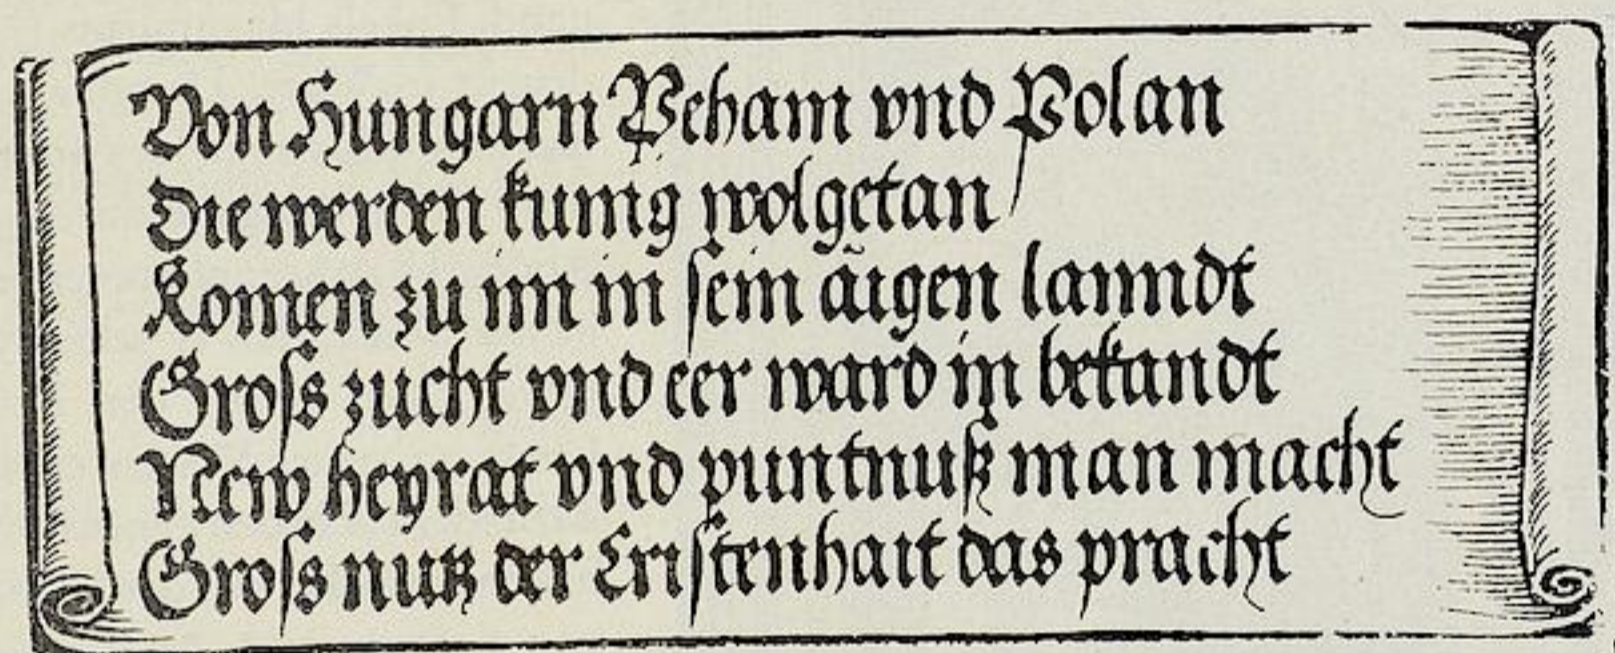 Von Hungarn Peham vnd Polan
Die werden kunig wolgetan
Komen zu im in sein aigen lanndt
Gross zucht vnd eer ward in bekandt
New heyrat vnd puntnuß man macht
Gross nutz der Cristenhait das pracht